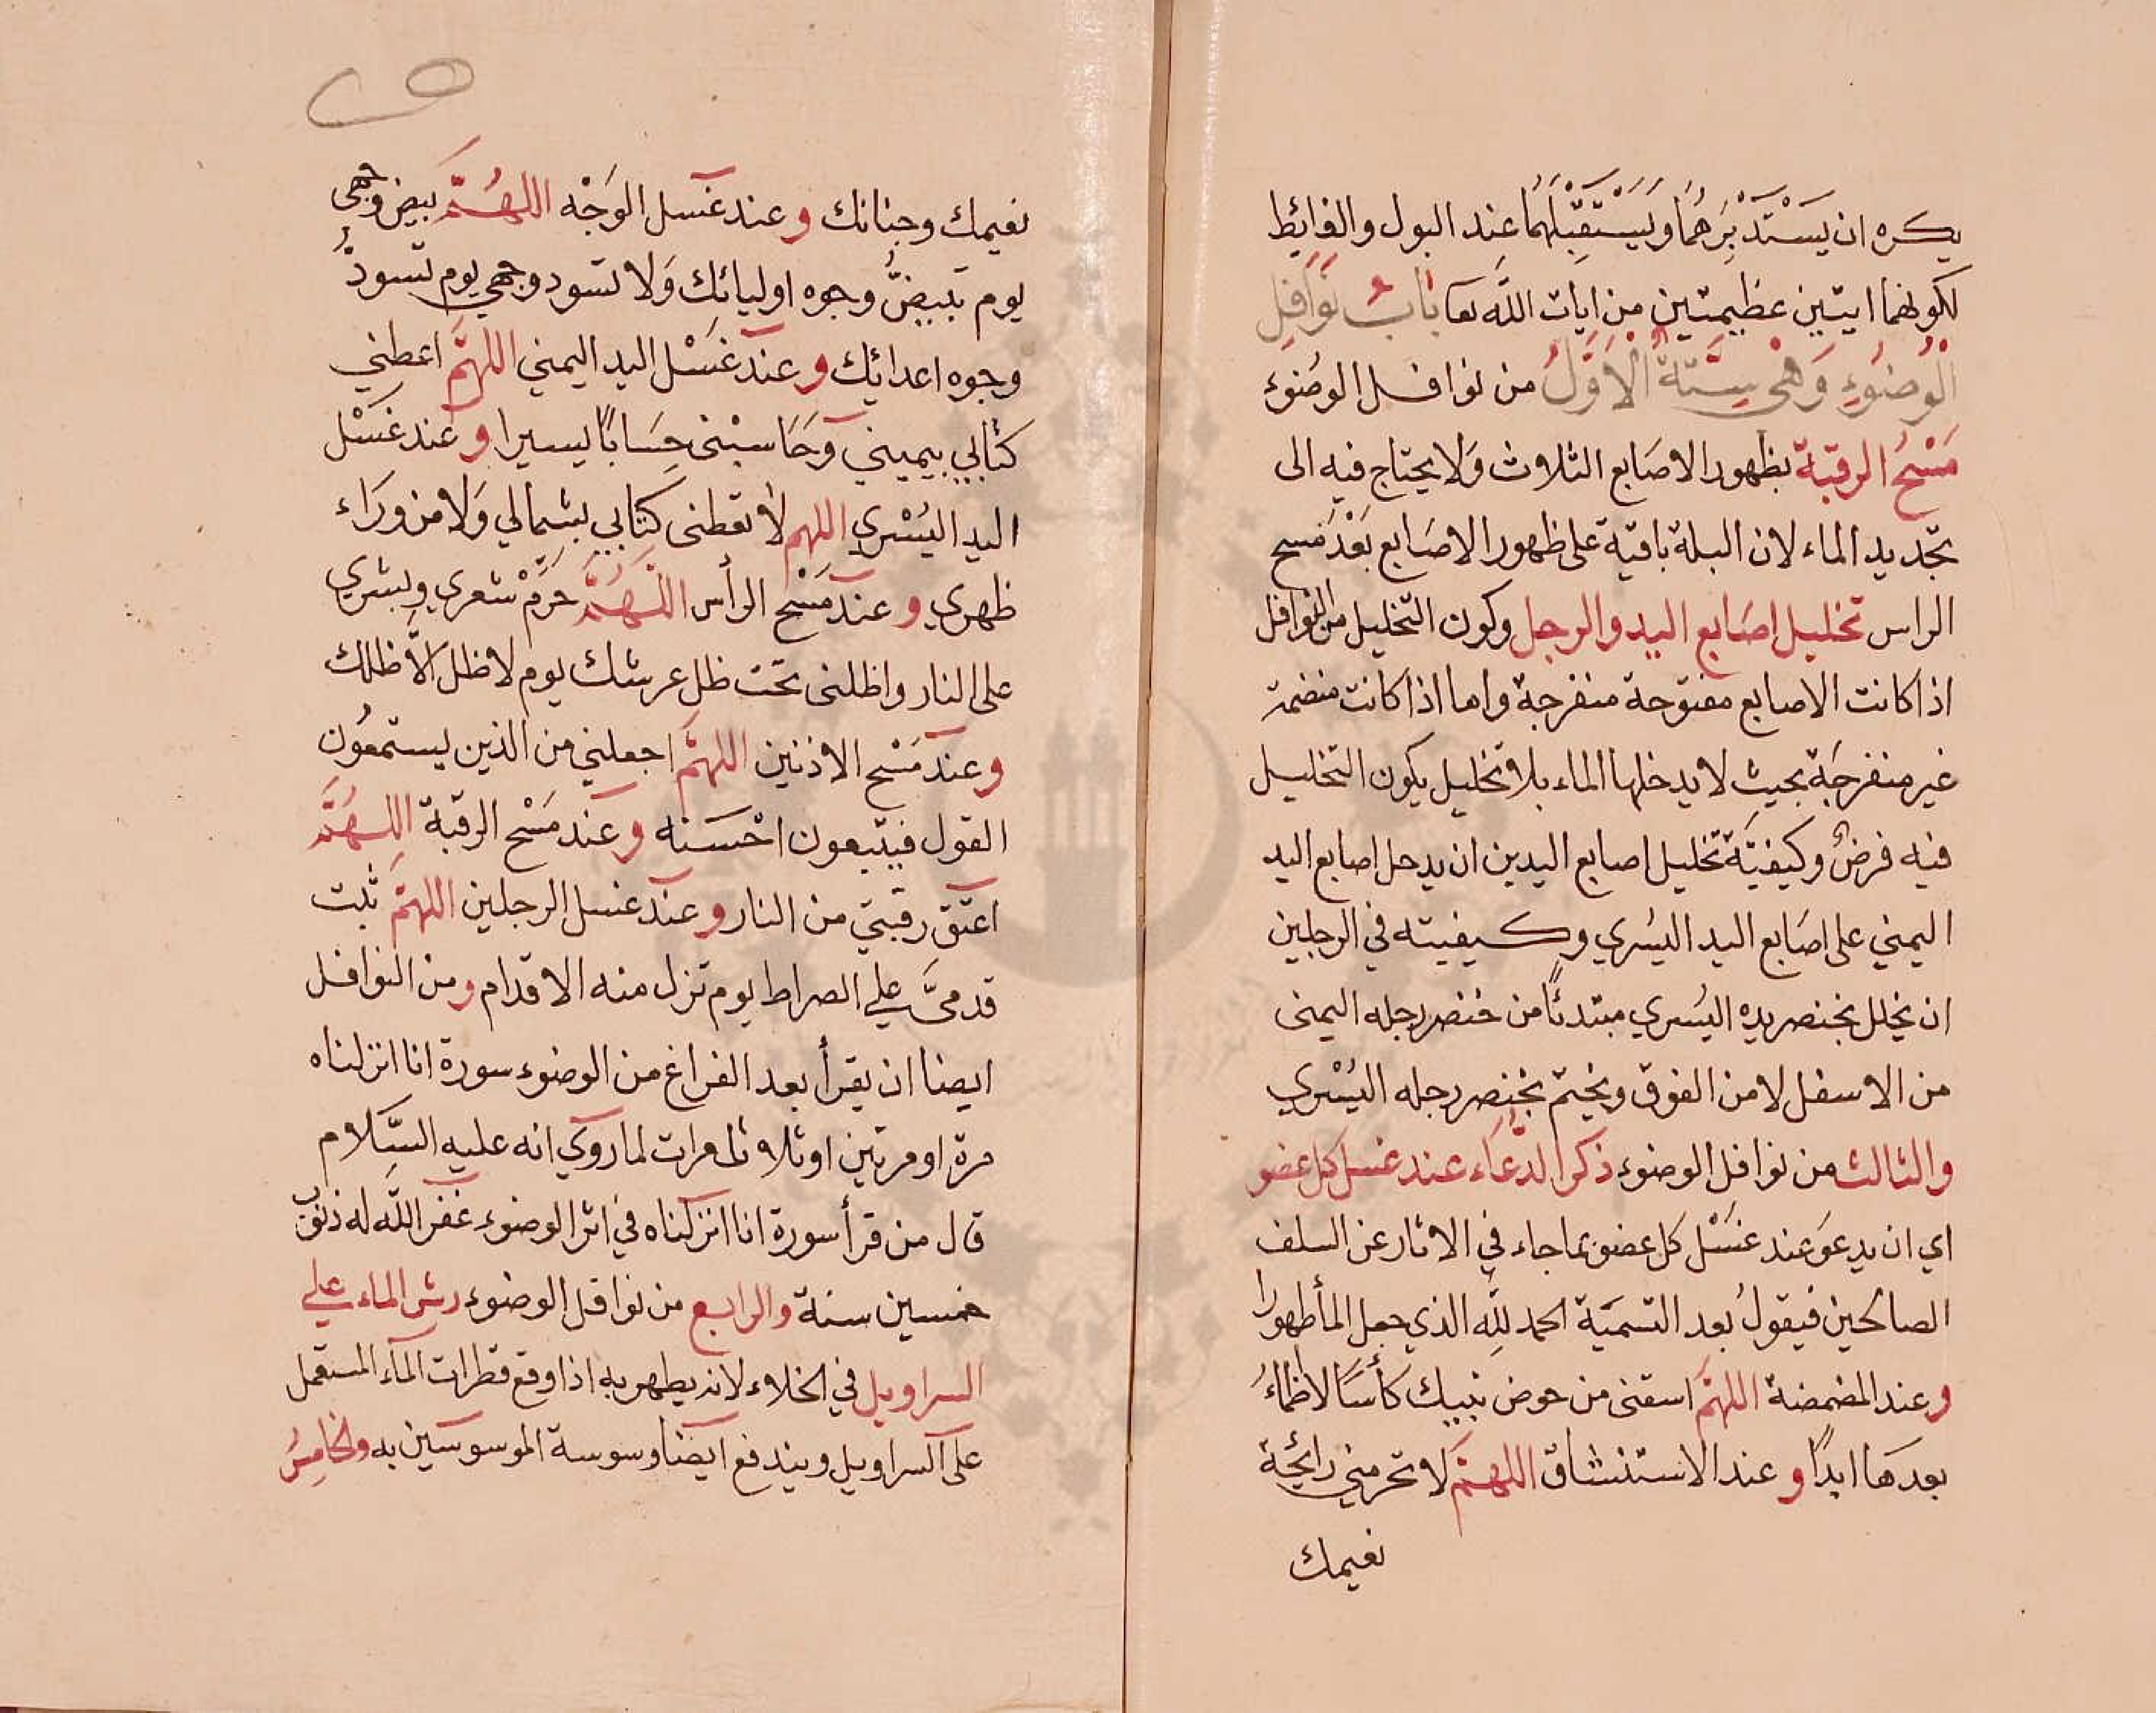 يكره ان يَسْتَدْبِرَهُمَا وَيَسْتَقْبِلَهُمَا عند البول والغائِط
لكونهما ايتين عظيمتين من ايات اللّه تعا باب نَوَافِلِ
الْوُضُوءِ وَهْىَ سِتَّةٌ الْاَوَّلُ من نوافل الوضوء
مَسْحُ الرقبة بظهور الاصَابع الثلاث وَلا يحتاج فيه الى
تجديد الماء لان البلة باقية على ظهور الاصَابع بَعْدَ مَسح
الراس تخليل اصَابع اليد والرجل وكون التخليل من النوافل
اذا كانت الاصابع مفتوحة منفرجة واما اذا كانت منضمة
غير منفرجَة بحيث لا يدخلها الماء بلا تخليل يكون التخليل
فيه فرضٌ وكيفيَّة تخليل اصابع اليدين ان يدخل اصابع اليد
اليمني على اصَابع اليد اليسري وكيفيته في الرجلين
ان يخلل بخنصر يده اليُسري مبتدئًا من خنصر رجله اليمنى
من الاسفل لا من الفوق ويختم بخنصر رجله اليُسْري
والثالث من نوافل الوضوء ذكر الدُّعَاء عند غسل كل عضو
اي ان يدعوَ عند غَسْل كل عضو بما جاء في الاثار عن السلف
الصالحين فيقولُ بعد التسميَة الحمد للّه الذي جعل الماْ طهورا
وعند المضمضة اللهمَّ اسقنى من حوض نبيك كأسًا لا اظماءُ
بعدهَا ابدًا وعند الاستنشاق اللهمَّ لا تحرمني رائحة
نعيمك
نعيمك وجنانك وعند غسل الوَجْه اللهُمَّ بيض وجهى
يوم تبيضُّ وجوه اوليائك وَلا تسود وجهي يوم تسودُّ
وجوه اعدائك وعند غَسْل اليد اليمني اللهمَّ اعطني
كتابي بيميني وَحَاسبْنى حِسَابًا يسيرا وعند غَسْل
اليد اليُسْري اللهم لا تعطنى كتابي بشمالي وَلا من ورَاء
ظهري وعند مَسْح الرأس اللّهُمَّ حَرِّمْ شعري وبشري
على النار واظلنى تحت ظل عرشك يوم لا ظل الاَّ ظلك
وعند مَسْح الاذنين اللهمَّ اجعلني من الذين يستمعُون
القول فيتبعون احْسَنه وعند مَسْح الرقبة اللهُمَّ
اعتق رقبتي من النار وعند غسل الرجلين اللهمَّ ثبت
قدمىَّ علي الصراط يوم تزل منه الاقدام ومن النوافل
ايضا ان يقرأ بعد الفراغ من الوضوء سورة انا انزلناه
مرة او مرتين او ثلاث مرات لما روي انه عليه السَّلام
قال من قرأ سورة انا انزلناه في اثر الوضوء غفر اللّه له ذنوب
خمسين سنة والرابع من نوافل الوضوء رش الماء علي
السراويل في الخلاء لانه يطهر به اذا وقع قطرات الماَء المستعمل
على السراويل ويندفع ايضًا وسوسة الموسوسين به والخامِسُ